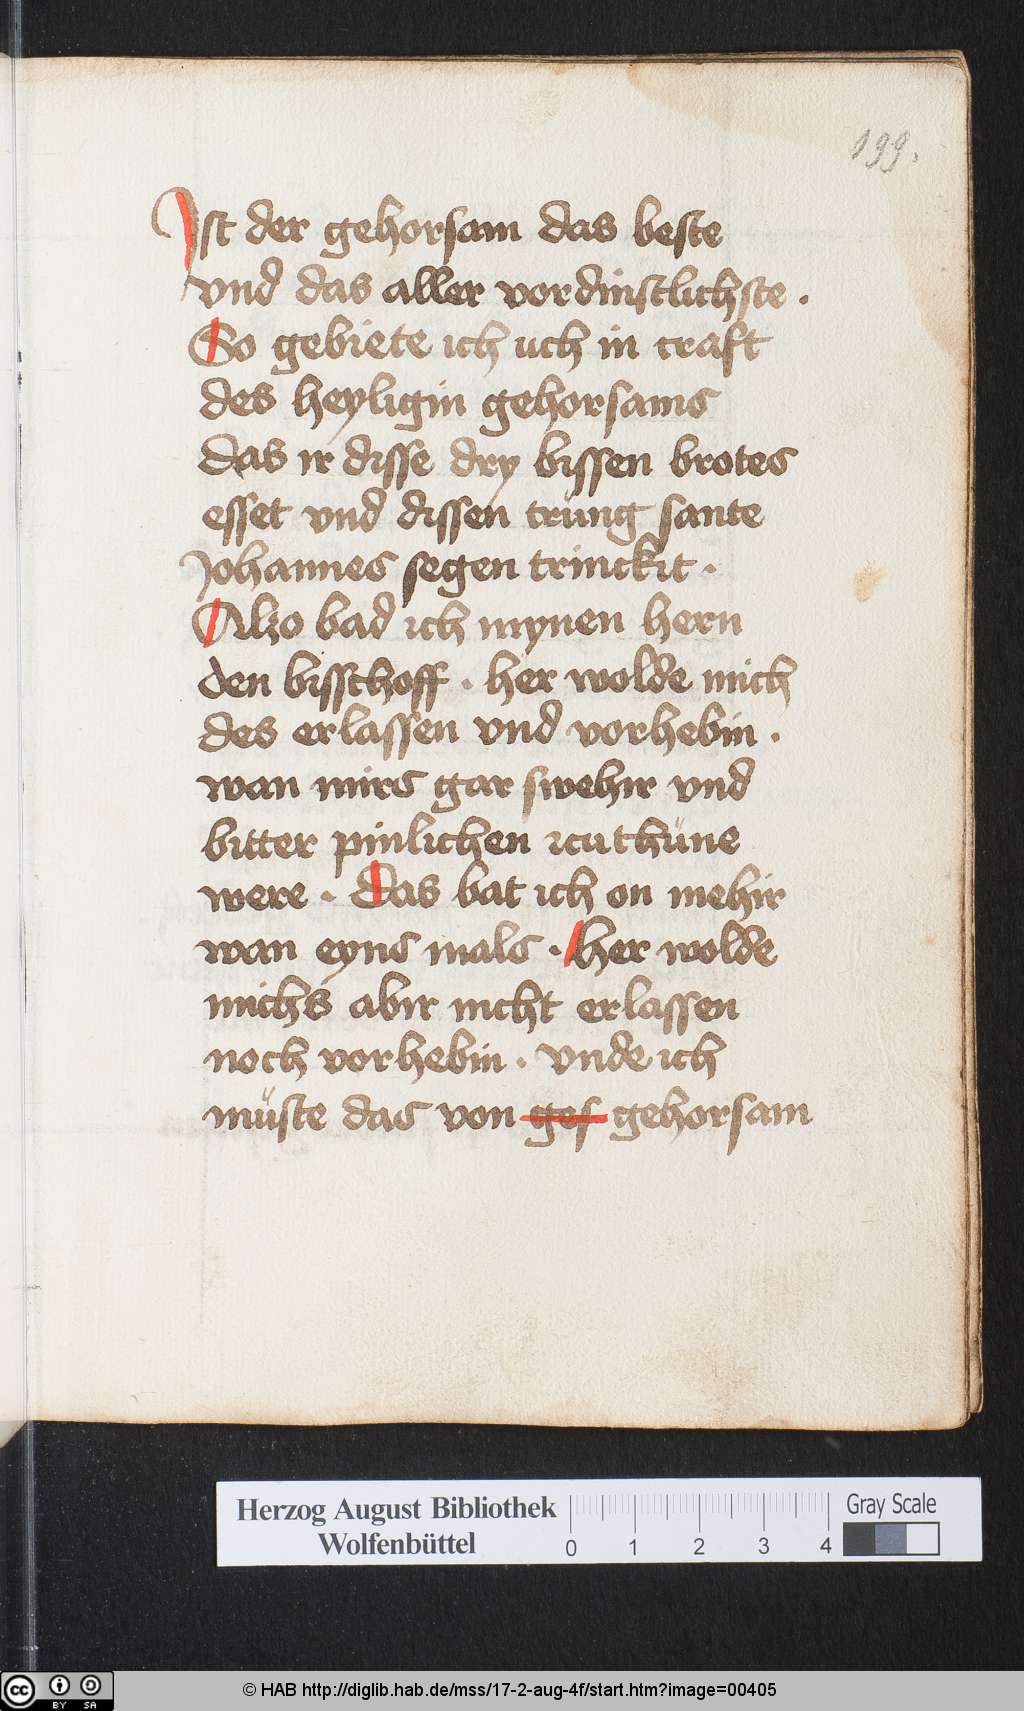 199.
Ist der gehorsam das beste
vnd das aller vordinstlichste .
So gebiete ich uch in craft
des heyligin gehorsams
das ir disse dry bissen brotes
esset vnd dissen trüng sante
Johannes segen trinckit .
Alzo bad ich mynen hern
den bisschoff . her wolde mich
des erlassen vnd vorhebin .
wan mirs gar swehir vnd
bitter pinlichen icu thüne
were . das bat ich on mehir
wan eyns mals . her wolde
michs abir nicht erlassen
noch vorhebin . vnde ich
müste das von ges gehorsam
Herzog August Bibliothek
Wolfenbüttel
0 1 2 3 4
Gray Scale
cc BY SA
© HAB http://diglib.hab.de/mss/17-2-aug-4f/start.htm?image=00405